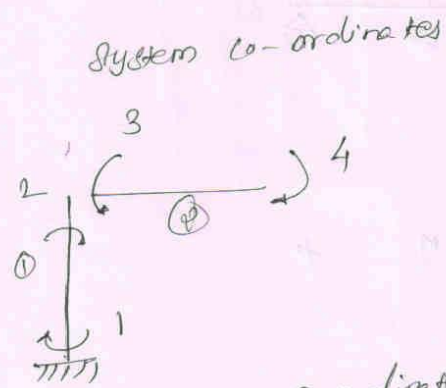 System co-ordinates
3
4
2
②
①
1